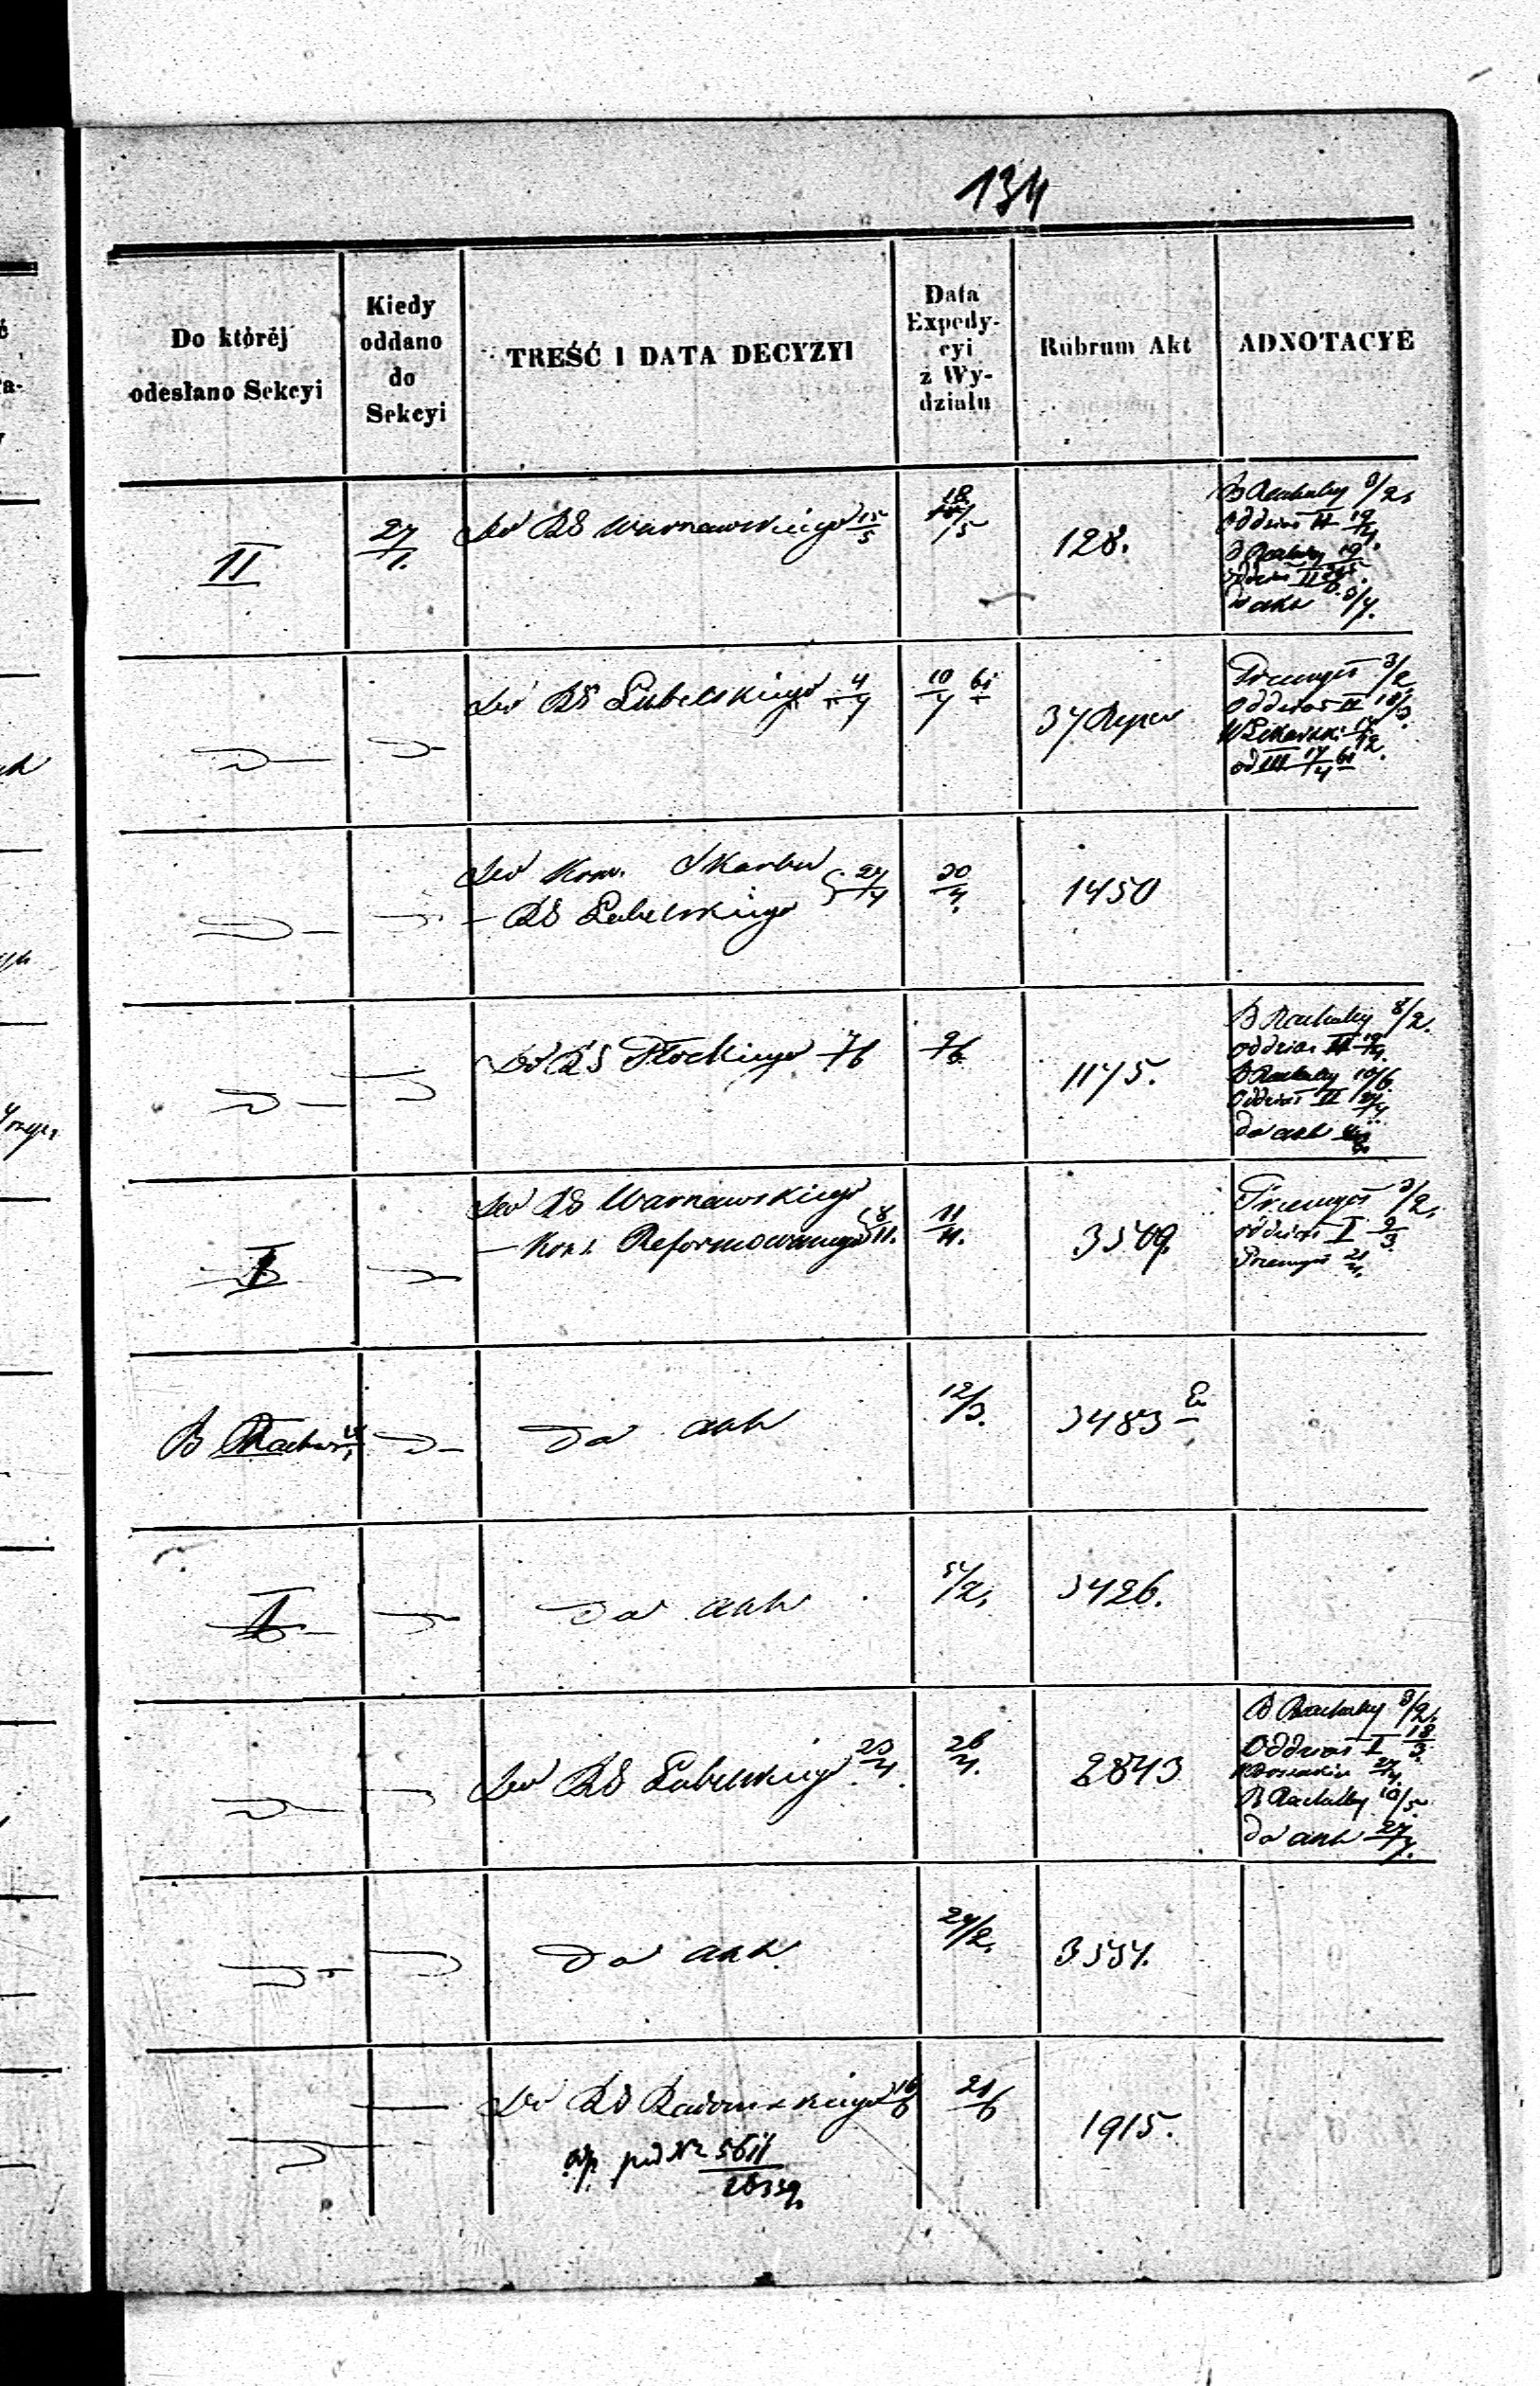 134
Do któréj
odesłano Sekcyi
Kiedy
oddano
do
Sekcyi
TREŚĆ I DATA DECYZYI
Data
Expedy-
cyi
z Wy-
działu
Rubrum Akt
ADNOTACYE
II
27/1.
Do RG Warszawskiego 15/5
18/5
128.
B Rachuby 8/2.
Oddział II 19/4.
B Rachuby 19
Oddział II
do akt 3/7.
Do RG Lubelskiego 4/4
10/4 61
37 Reper
Przemysł 3/2
Oddział II 18/3.
W Lekarski
od III 17/4 61
Do Kom. Skarbu
- RG Lubelskiego 27/4
30/4.
1450
Do RG Płockiego 7/6
9/6.
1175.
B Rachuby 8/2.
Oddział II 19/4.
B Rachuby 10/6.
Oddział II
do akt
I
Do RG Warszawskiego
- Kons. Reformowanego 8/11.
11/11.
3549.
Przemysł 3/2.
Oddział I 9/3.
Przemysł
B Rachuby
do akt
12/3.
3483
I
do akt
5/2.
3426.
Do RG Lubelskiego 23/4.
26/4.
2843
B Rachuby 8/2.
Oddział I 18/3.
B Rachuby 10/5.
do akt 27/7.
do akt
24/2.
Do RG Radomskiego 16/6
21/6
1915.
pod Nr 5611